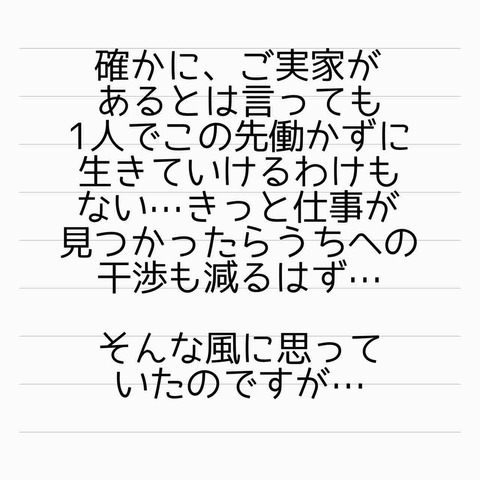 確かに、ご実家が
あるとは言っても
1人でこの先働かずに
生きていけるわけも
ない…きっと仕事が
見つかったらうちへの
干渉も減るはず…
そんな風に思って
いたのですが…